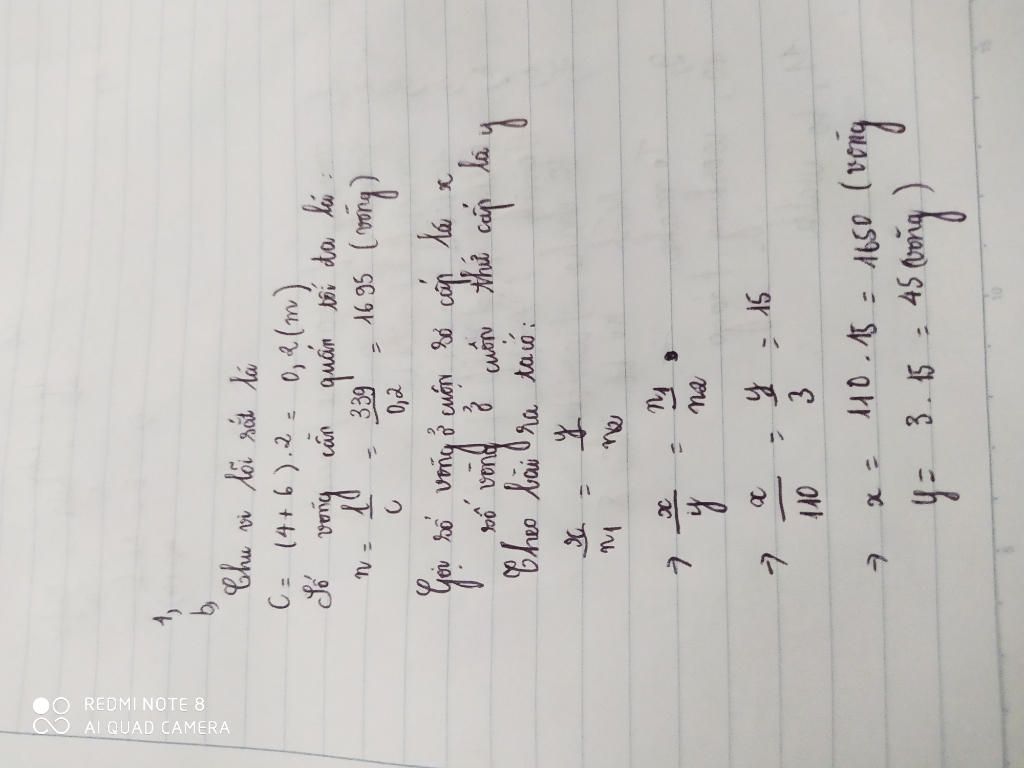 1,
b,
Chu vi lõi sắt là
C = (4+6).2 = 0,2 (m)
Số vòng cần quấn tối đa là:
n = l/C = 339/0,2 = 1695 (vòng)
Gọi số vòng ở cuộn sơ cấp là x
số vòng ở cuộn thứ cấp là y
Theo bài ra ta có:
x/n1 = y/n2
→ x/y = n1/n2
→ x/110 = y/3 = 15
→ x = 110.15 = 1650 (vòng
y = 3.15 = 45 (vòng)
REDMI NOTE 8
AI QUAD CAMERA